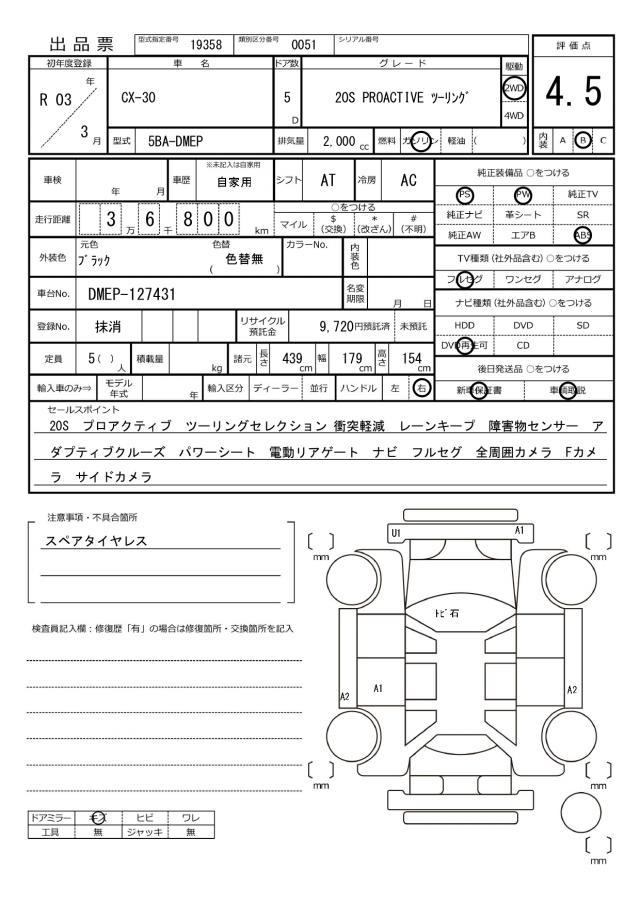 出品票
型式指定番号 19358 類別区分番号 0051 シリアル番号
初年度登録 車名 ドア数 グレード 駆動 評価点
R 03 年 3 月 CX-30 5 D 20S PROACTIVE ツーリング 2WD 4WD 4.5
型式 5BA-DMEP 排気量 2,000 cc 燃料 ガソリン 軽油 ( ) 内装 A B C
車検 年 月 車歴 ※未記入は自家用 自家用 シフト AT 冷房 AC
純正装備品 ○をつける
PS PW 純正TV
純正ナビ 革シート SR
純正AW エアB ABS
走行距離 3 万 6 千 8 0 0 km
○をつける
マイル $ (交換) * (改ざん) # (不明)
外装色 元色 ブラック 色替 ( 色替無 ) カラーNo. 内装色
TV種類 (社外品含む) ○をつける
フルセグ ワンセグ アナログ
車台No. DMEP-127431 名変期限 月 日
ナビ種類 (社外品含む) ○をつける
HDD DVD SD
DVD再生可 CD
登録No. 抹消 リサイクル預託金 9,720円預託済 未預託
定員 5( ) 人 積載量 kg 諸元 長さ 439 cm 幅 179 cm 高さ 154 cm
後日発送品 ○をつける
新車保証書 車輌取説
輸入車のみ⇒ モデル年式 年 輸入区分 ディーラー 並行 ハンドル 左 右
セールスポイント
20S プロアクティブ ツーリングセレクション 衝突軽減 レーンキープ 障害物センサー ア
ダプティブクルーズ パワーシート 電動リアゲート ナビ フルセグ 全周囲カメラ Fカメ
ラ サイドカメラ
注意事項・不具合箇所
スペアタイヤレス
検査員記入欄：修復歴「有」の場合は修復箇所・交換箇所を記入
U1 A1
[ ] mm [ ] mm
トビ石
A2 A1 A2
[ ] mm [ ] mm
[ ] mm
ドアミラー キズ ヒビ ワレ
工具 無 ジャッキ 無